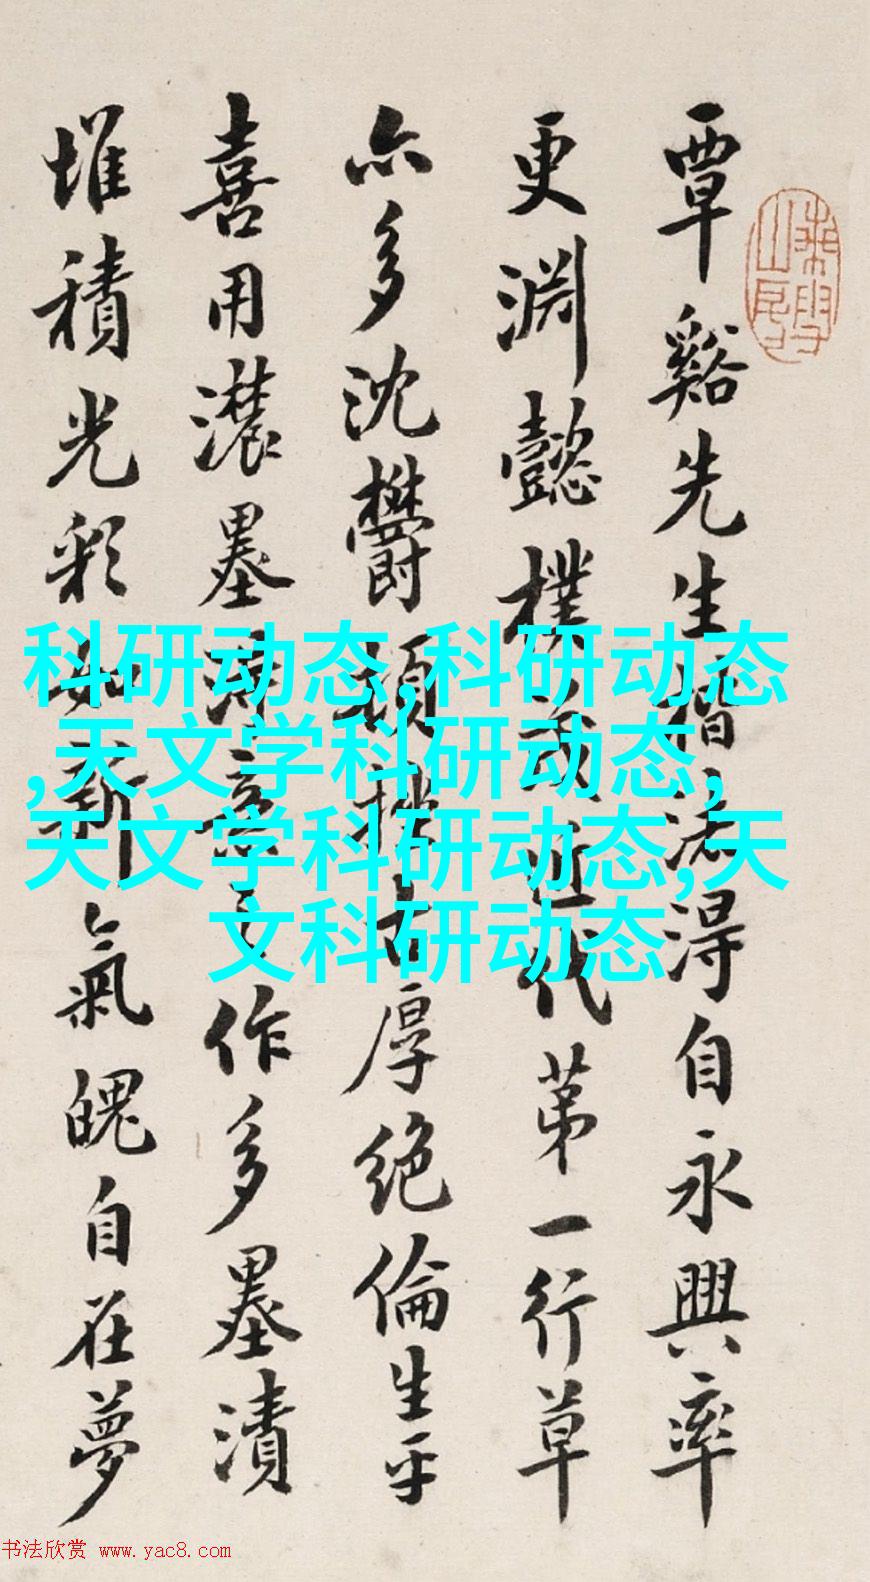 覃谿先生楷法得自永興率
更淵懿樸茂近代第一行草
亦多沈鬱頓挫古厚絕倫生平
喜用濃墨意之作多墨漬
堆積光彩如新氣魄自在夢
科研动态,科研动态
,天文学科研动态,
天文学科研动态,天
文科研动态
书法欣赏 www.yac8.com